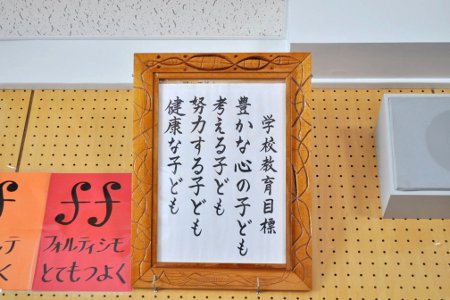 学校教育目標
豊かな心の子ども
考える子ども
努力する子ども
健康な子ども
ff
フォルティシモ
とてもつよく
f